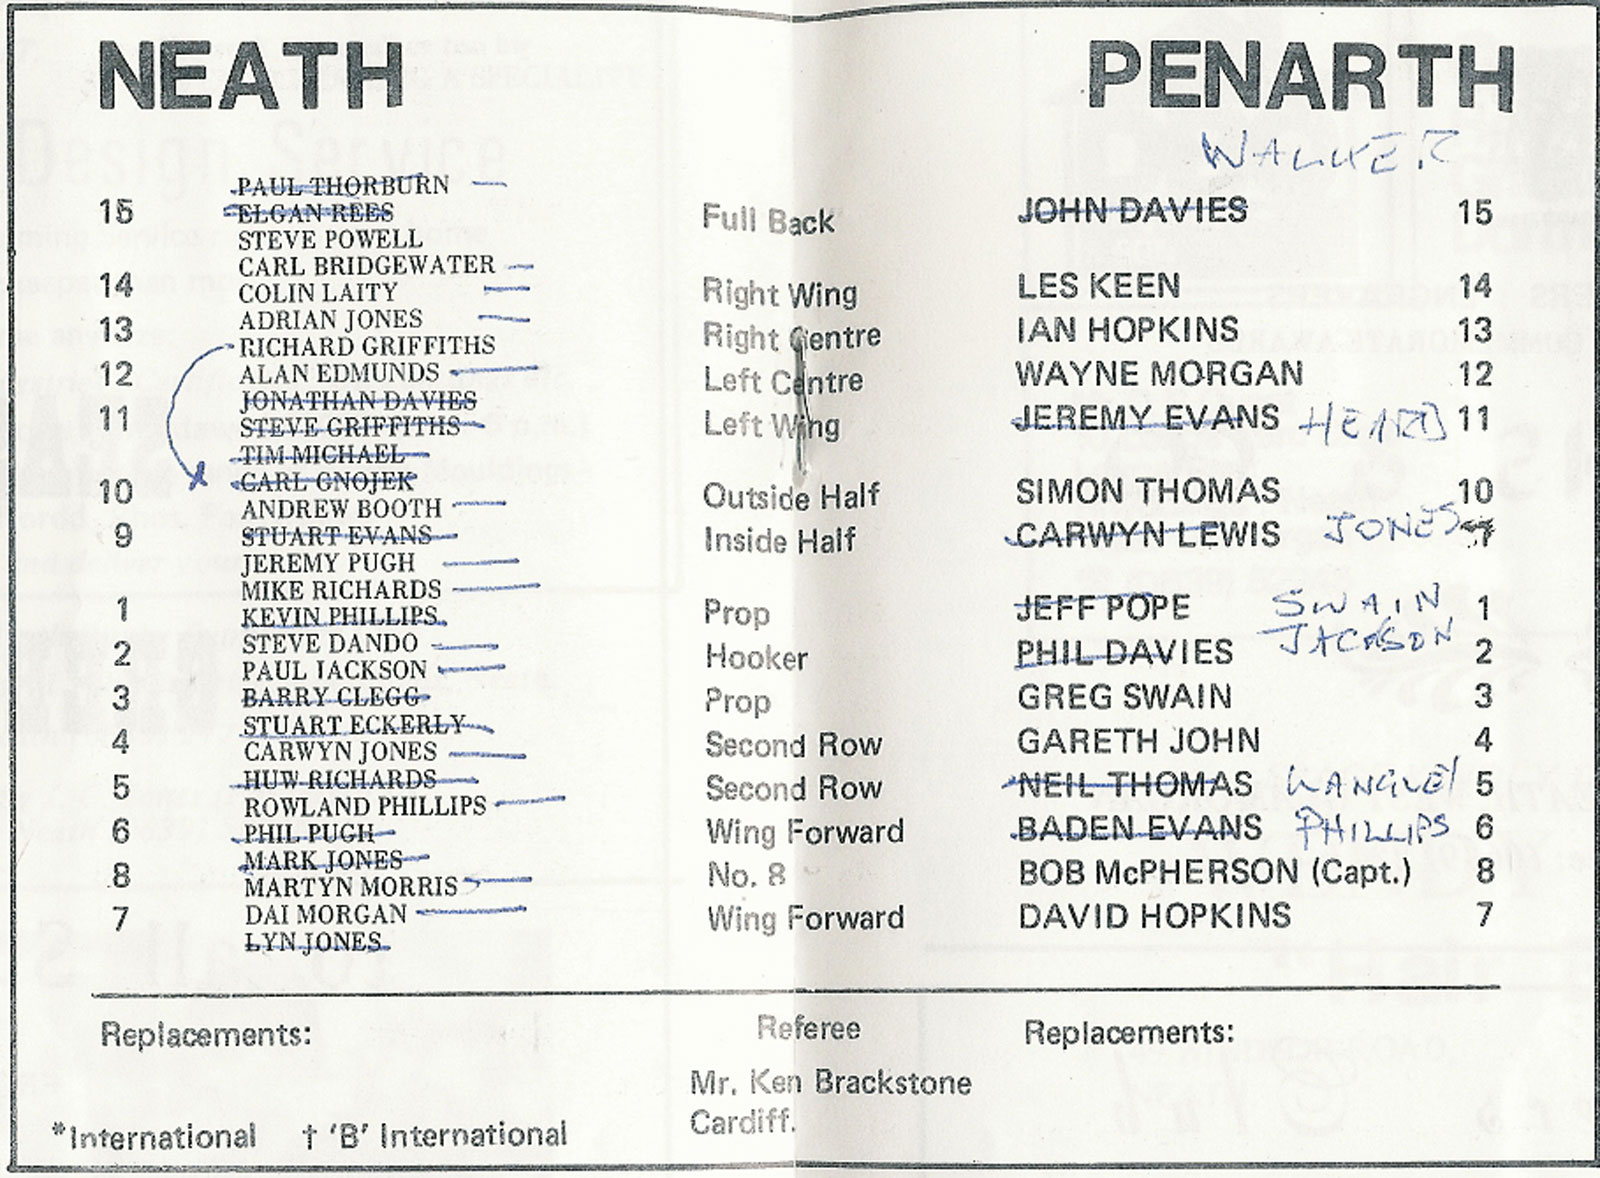 NEATH PENARTH
WALKER
PAUL THORBURN
15 ELGAN REES Full Back JOHN DAVIES 15
STEVE POWELL
CARL BRIDGEWATER
14 COLIN LAITY Right Wing LES KEEN 14
13 ADRIAN JONES Right Centre IAN HOPKINS 13
RICHARD GRIFFITHS
12 ALAN EDMUNDS Left Centre WAYNE MORGAN 12
JONATHAN DAVIES
11 STEVE GRIFFITHS Left Wing JEREMY EVANS HEARD 11
TIM MICHAEL
CARL GNOJEK
10 ANDREW BOOTH Outside Half SIMON THOMAS 10
9 STUART EVANS Inside Half CARWYN LEWIS JONES
JEREMY PUGH
MIKE RICHARDS
1 KEVIN PHILLIPS Prop JEFF POPE SWAIN 1
STEVE DANDO
2 PAUL JACKSON Hooker PHIL DAVIES JACKSON 2
3 BARRY CLEGG Prop GREG SWAIN 3
STUART ECKERLY
4 CARWYN JONES Second Row GARETH JOHN 4
5 HUW RICHARDS Second Row NEIL THOMAS LANGLEY 5
ROWLAND PHILLIPS
6 PHIL PUGH Wing Forward BADEN EVANS PHILLIPS 6
MARK JONES
8 MARTYN MORRIS No. 8 BOB McPHERSON (Capt.) 8
7 DAI MORGAN Wing Forward DAVID HOPKINS 7
LYN JONES
Replacements: Referee Replacements:
Mr. Ken Brackstone
Cardiff.
*International † 'B' International